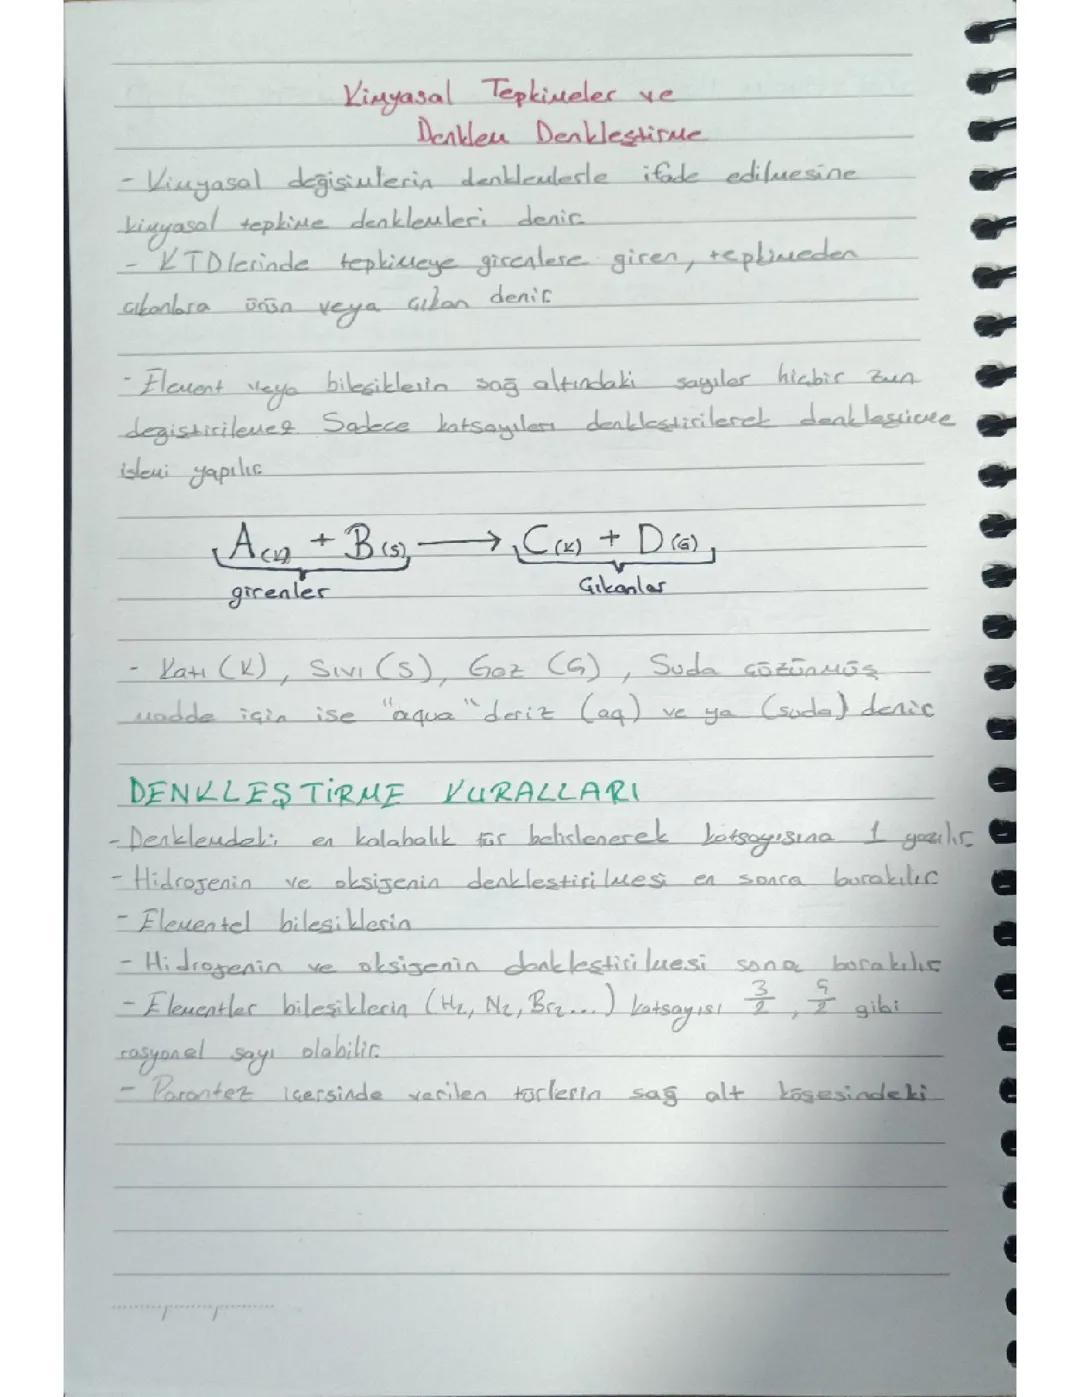 Kimyasal Tepkimeler ve
Denklem Denkleştirme
- Kimyasal değişimlerin denklemlerle ifade edilmesine
kimyasal tepkime denklemleri denir.
- KTDlerinde tepkimeye girenlere giren, tepkimeden
çıkanlara ürün veya çıkan denir
- Element veya bileşiklerin sağ altındaki sayılar hiçbir
değiştirilemez Sadece katsayıları denkleştirilerek denkleştirme
işlemi yapılır
A(K) + B(S) → C(K) + D(G)
girenler Çıkanlar
- Katı (K), Sıvı (S), Gaz (G), Suda çözünmüş
madde için ise "aqua" deriz (aq) ve ya (suda) denir
DENKLEŞTİRME KURALLARI
- Denklemdeki en kalabalık tür belirlenerek katsayısına 1 yazılır
- Hidrojenin ve oksijenin denkleştirilmesi en sonra bırakılır
- Elementel bileşiklerin
- Hidrojenin ve oksijenin denkleştirilmesi sona bırakılır
- Elementler bileşiklerin (H2, N2, Br2...) katsayısı 3/2, 9/2 gibi
rasyonel sayı olabilir.
- Parantez içersinde verilen türlerin sağ alt köşesindeki